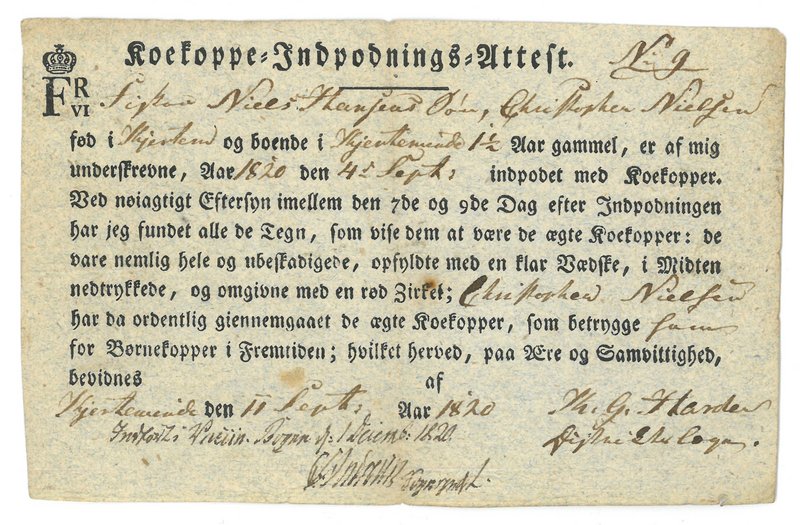 Koekoppe=Indpodnings=Attest. No 9
FR VI
Niels Hansens Søn, Christopher Nielsen
fød i Kjertem og boende i Kjerteminde 1½ Aar gammel, er af mig
underskrevne, Aar 1820 den 4de Sept: indpodet med Koekopper.
Ved nøiagtigt Eftersyn imellem den 7de og 9de Dag efter Indpodningen
har jeg fundet alle de Tegn, som vise dem at være de ægte Koekopper: de
vare nemlig hele og ubeskadigede, opfyldte med en klar Vædske, i Midten
nedtrykkede, og omgivne med en rød Zirkel; Christopher Nielsen
har da ordentlig giennemgaaet de ægte Koekopper, som betrygge ham
for Børnekopper i Fremtiden; hvilket herved, paa Ære og Samvittighed,
bevidnes af
Kjerteminde den 11 Sept: Aar 1820 Th. G. Harder
Indført i Vaccin. Bogen d: 1 Decemb: 1820. Districtslæge.
Sogneprest.